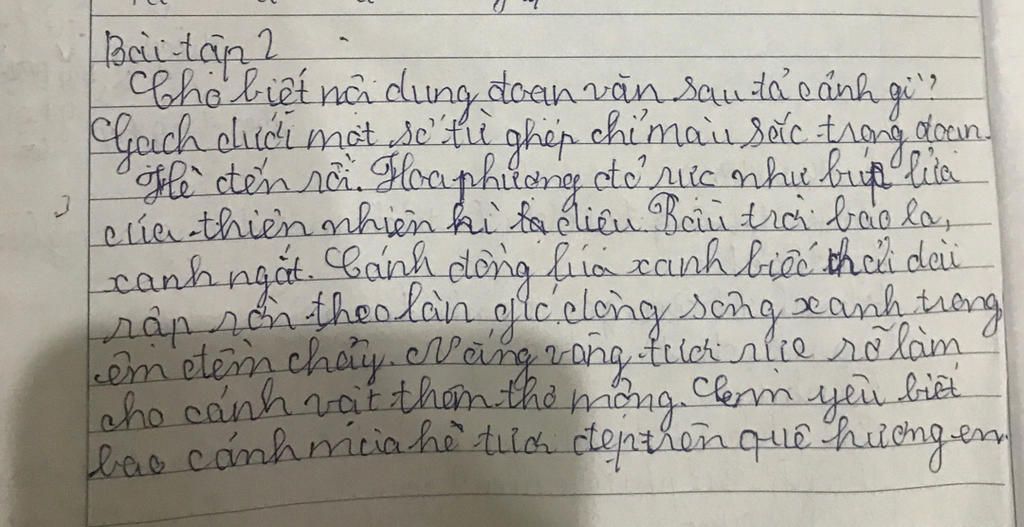 Bài tập 2
Cho biết nội dung đoạn văn sau tả cảnh gì?
Gạch dưới một số từ ghép chỉ màu sắc trong đoạn.
Hè đến rồi. Hoa phượng đỏ rực như búp lửa
của thiên nhiên kì ta diệu. Bầu trời bao la,
xanh ngắt. Cánh đồng lúa xanh biếc chải dài
rập rờn theo làn gió. dòng sông xanh trong
êm đềm chảy. Nắng vàng tươi rực rỡ làm
cho cảnh vật thêm thơ mộng. Em yêu biết
bao cảnh mùa hè tươi đẹp trên quê hương em.